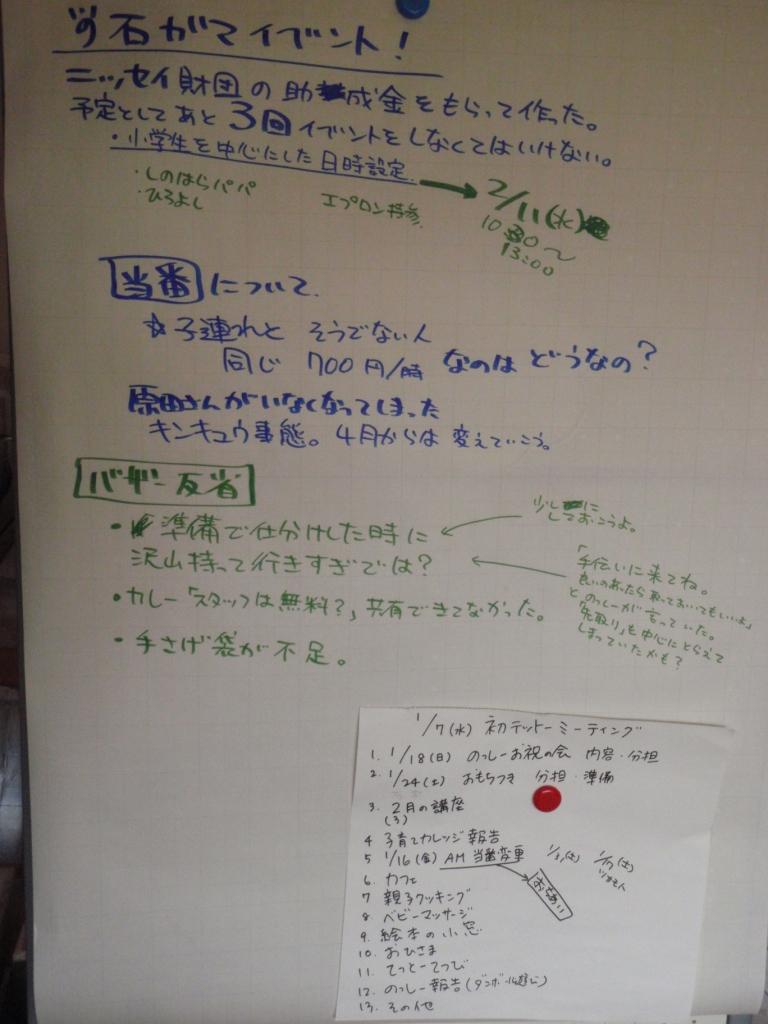 石ガマイベント!
ニッセイ財団の助成金をもらって作った。
予定としてあと3回イベントをしなくてはいけない。
・小学生を中心にした日時設定
→ 2/11(水)
・しのはらパパ
・ひろよし
エプロン持参
10:30〜
13:00
当番について
☆子連れと そうでない人
同じ 700円/時 なのは どうなの?
原田さんがいなくなってしまった
キンキュウ事態。4月からは変えていこう。
バザー反省
・準備で仕分けした時に
沢山持って行きすぎでは?
少しに
しておこうよ。
「手伝いに来てね。
良いのあったら取っておいてもいいよ」
とのっしーが言っていた。
「先取り」も中心にとらえて
しまっていたかも?
・カレー「スタッフは無料?」共有できてなかった。
・手さげ袋が不足。
1/7(水) 初テットーミーティング
1. 1/18(日) のっしーお祝の会 内容・分担
2. 1/24(土) おもちつき 分担・準備
3. 2月の講座
(3)
4 子育てカレッジ報告
5 1/16(金) AM 当番変更
1/17(土)
おちあい
6. カフェ
7 親子クッキング
8 ベビーマッサージ
9. 絵本の小窓
10. おひさま
11. てっとーてつび
12. のっしー報告(ダンボール遊び)
13. その他